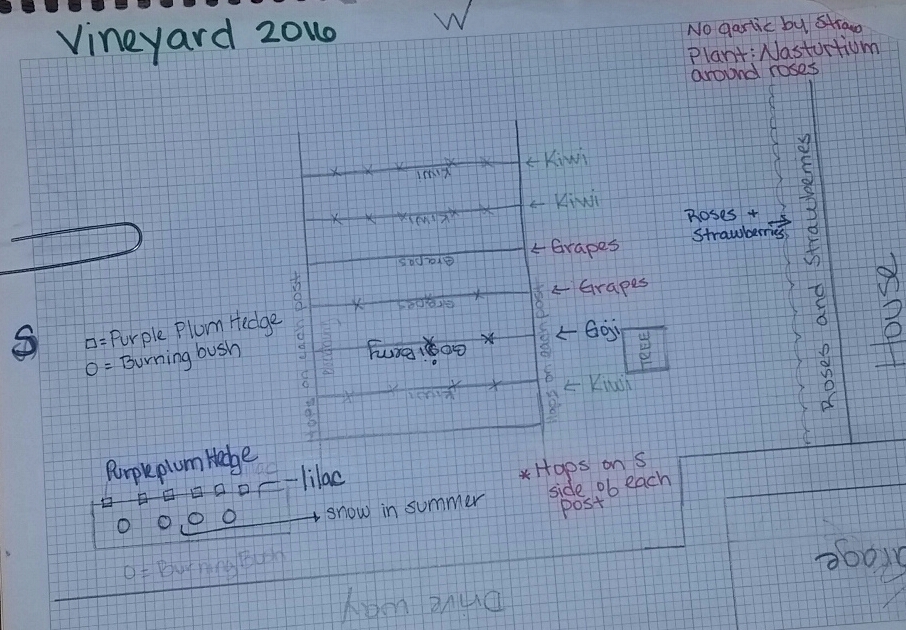 Vineyard 2016
W
No garlic by Straw
Plant: Nasturtium
around roses
← Kiwi
Kiwi
← Kiwi
Kiwi
← Grapes
Grapes
← Grapes
Grapes
← Goji
Goji Berry
← Kiwi
Kiwi
Hops on each post
Hops on each post
TREE
Roses +
Strawberries
Roses and Strawberries
House
S
□ = Purple Plum Hedge
O = Burning bush
Purple plum Hedge
lilac
snow in summer
O = Burning Bush
* Hops on S
side of each
post
Drive way
Garage